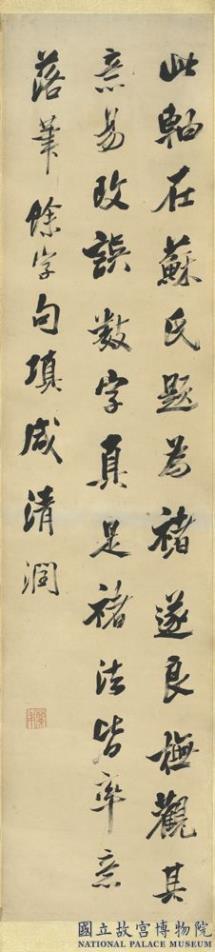 此軸在蘇氏題為褚遂良橅觀其
意易改誤數字真是褚法皆率意
落筆餘字句填咸清潤
國立故宮博物院
NATIONAL PALACE MUSEUM